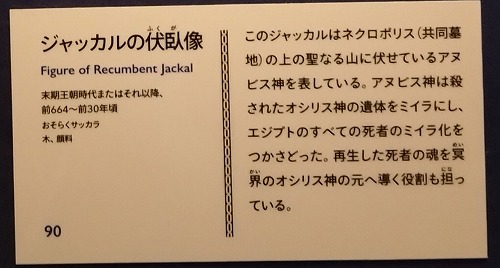 ジャッカルの伏臥像
Figure of Recumbent Jackal
末期王朝時代またはそれ以降、
前664〜前30年頃
おそらくサッカラ
木、顔料
90
このジャッカルはネクロポリス(共同墓
地)の上の聖なる山に伏せているアヌ
ビス神を表している。アヌビス神は殺
されたオシリス神の遺体をミイラにし、
エジプトのすべての死者のミイラ化を
つかさどった。再生した死者の魂を冥
界のオシリス神の元へ導く役割も担っ
ている。